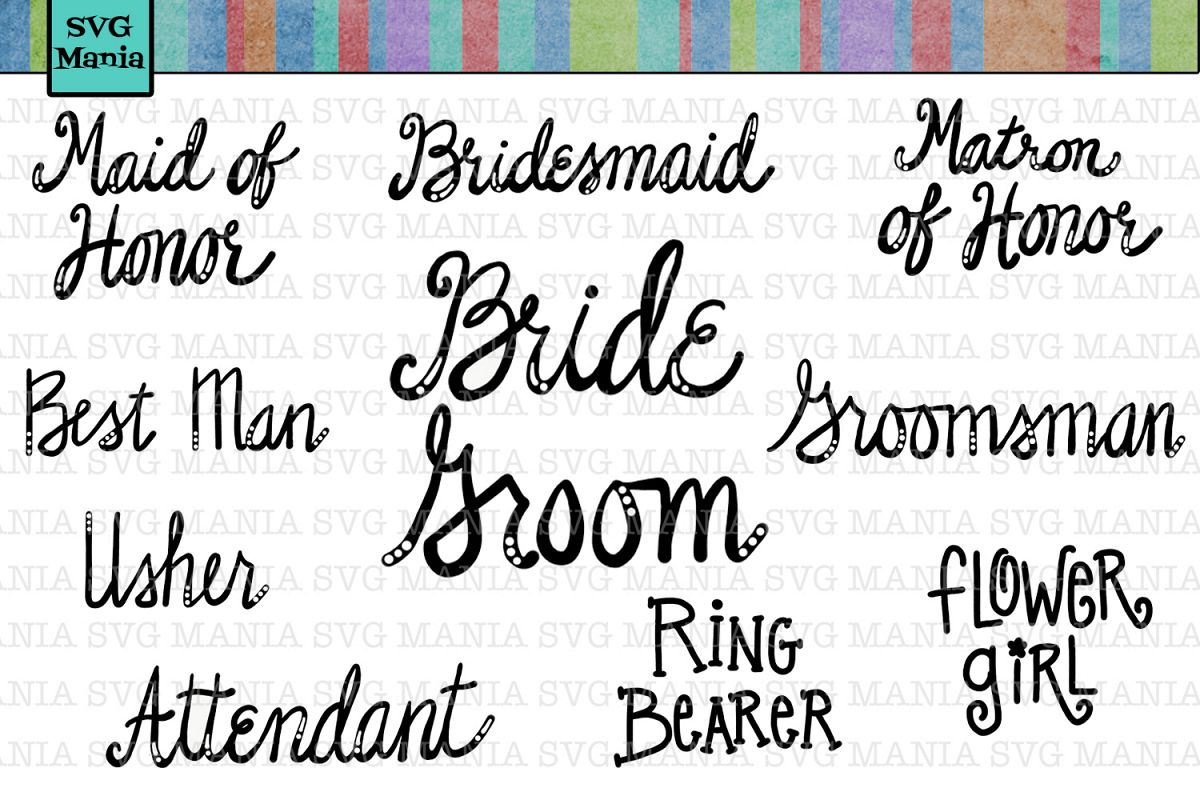 SVG
Mania
Maid of
Honor
Bridesmaid
Matron
of Honor
Bride
Groom
Best Man
Groomsman
Usher
Ring
Bearer
flower
girl
Attendant
SVG MANIA SVG MANIA SVG MANIA SVG MANIA